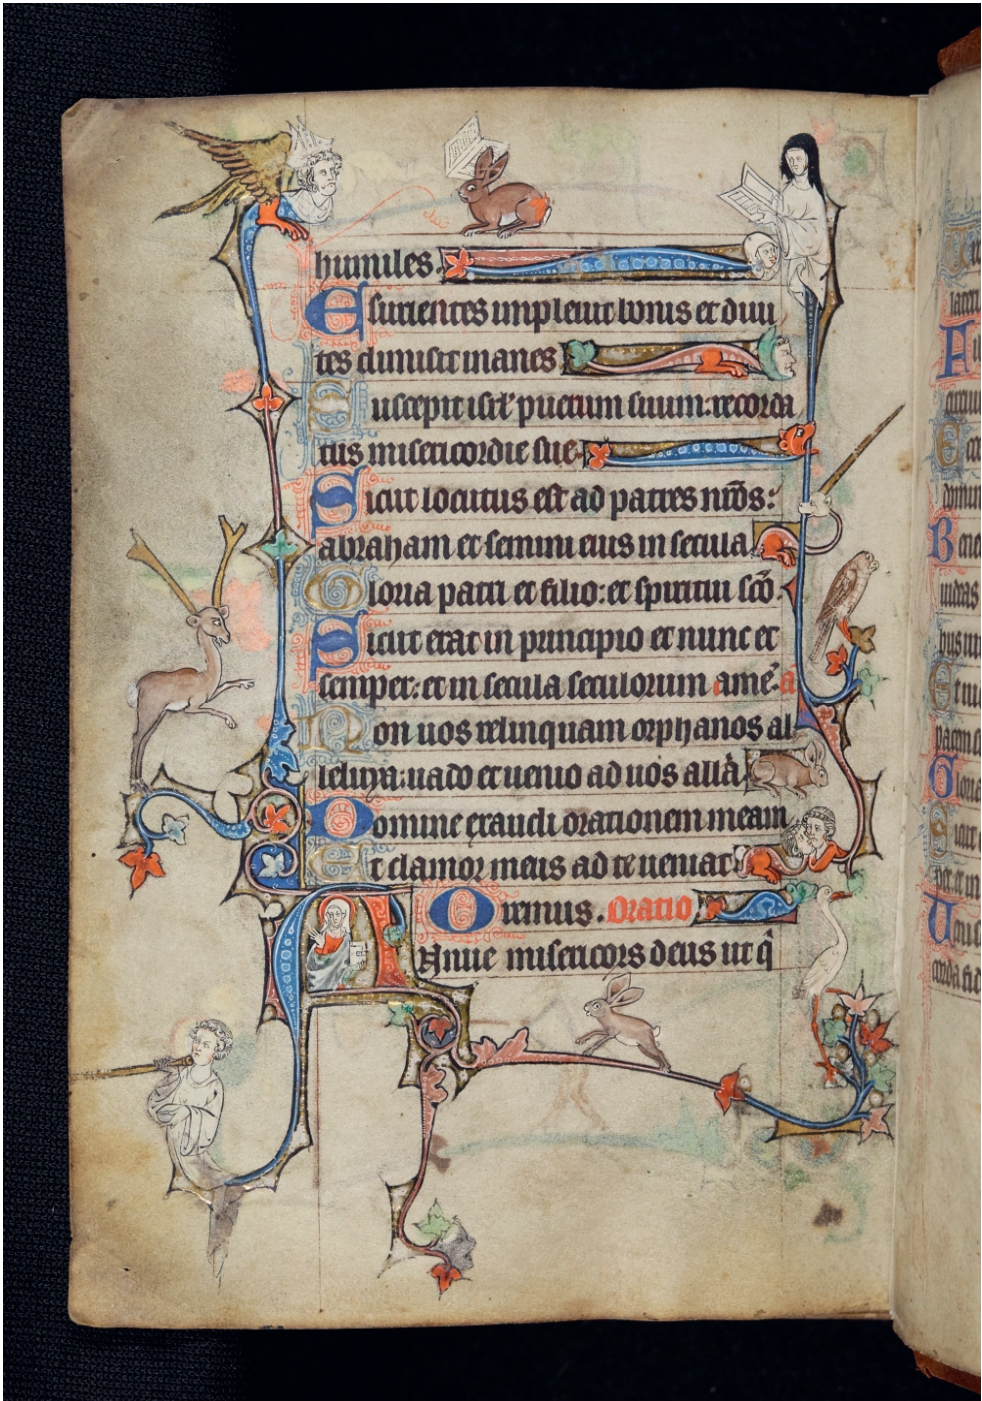 humiles.
Esurientes impleuit bonis et diui
tes dimisit inanes
Suscepit isrl' puerum suum: recorda
tus misericordie sue
Sicut locutus est ad patres nr̄os:
abraham et semini eius in secula
Gloria patri et filio: et spiritui sc̄o.
Sicut erat in principio et nunc et
semper: et in secula seculorum amē. a
Non uos relinquam orphanos al
leluya: uado et uenio ad uos all'a
Domine exaudi orationem meam
Et clamor meus ad te ueniat
Oremus. Oratio
Annue misericors deus ut q̄